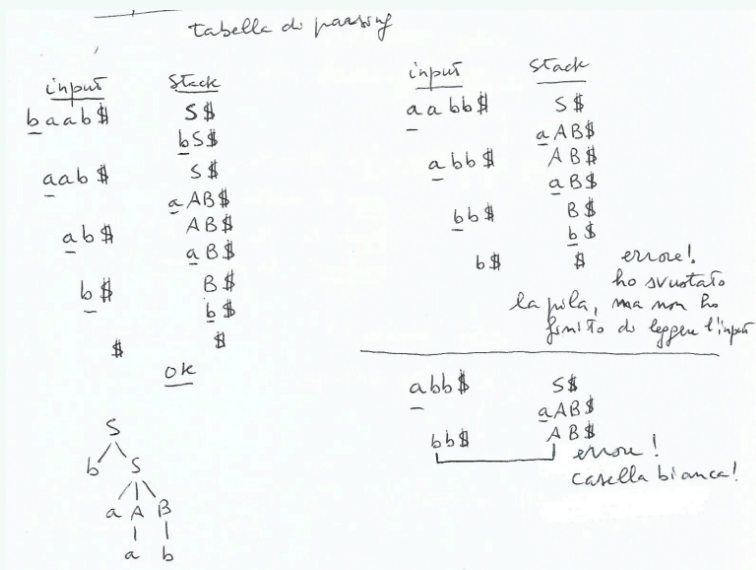 tabella di parsing
input Stack
baab$ S$
bS$
aab$ S$
aAB$
AB$
ab$ aB$
B$
b$ b$
$ $
ok
S
b S
a A B
a b
input Stack
aabb$ S$
aAB$
abb$ AB$
aB$
bb$ B$
b$
b$ $ errore!
ho svuotato
la pila, ma non ho
finito di leggere l'input
abb$ S$
aAB$
bb$ AB$
errore!
casella bianca!